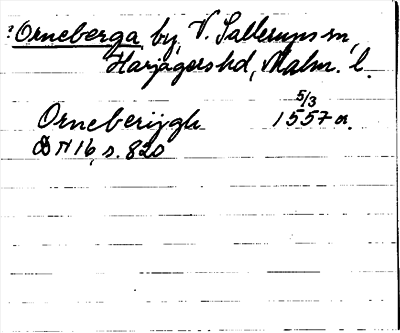 ? Orneberga by, V. Sallerups sn,
Harjagers hd, Malm. l.
Orneberijgh 5/3 1557 or.
DN 16, s. 820